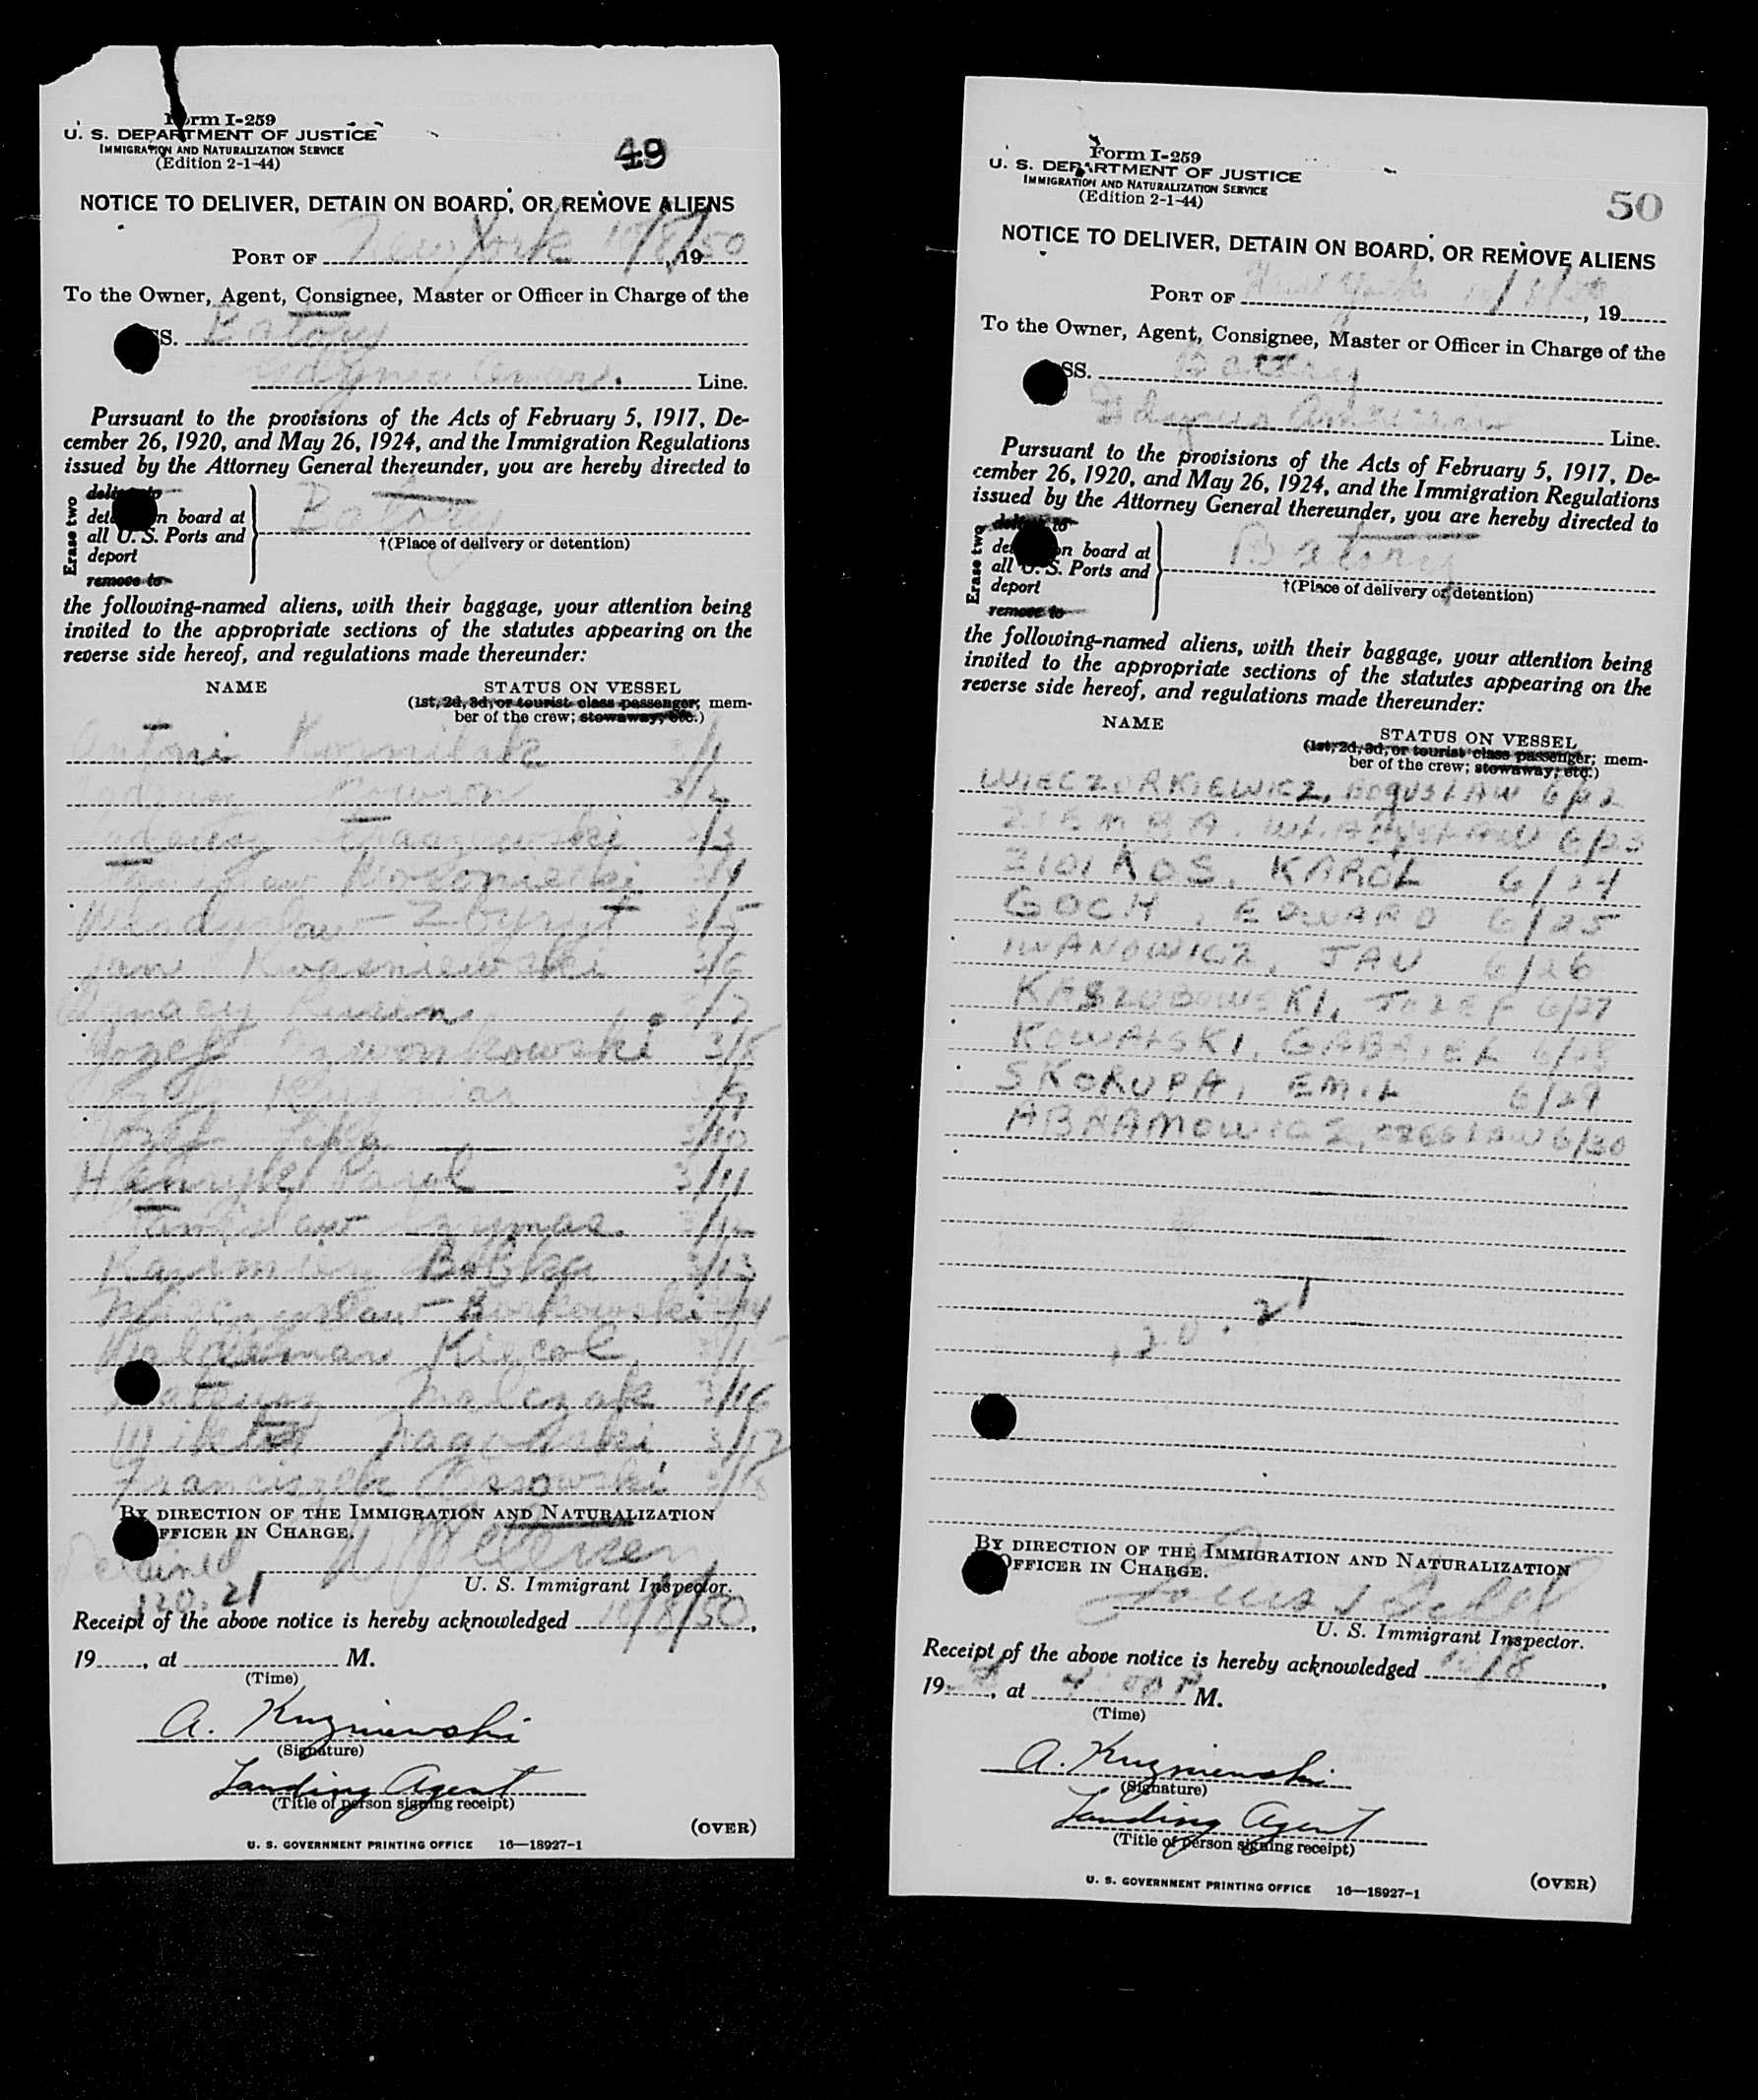 Form I-259
U. S. DEPARTMENT OF JUSTICE
IMMIGRATION AND NATURALIZATION SERVICE
(Edition 2-1-44)
49
NOTICE TO DELIVER, DETAIN ON BOARD, OR REMOVE ALIENS
PORT OF New York 10/8/50, 19
To the Owner, Agent, Consignee, Master or Officer in Charge of the
SS. Batory
Gdynia Amer. Line.
Pursuant to the provisions of the Acts of February 5, 1917, De-
cember 26, 1920, and May 26, 1924, and the Immigration Regulations
issued by the Attorney General thereunder, you are hereby directed to
Erase two
deliver to
detain on board at
all U. S. Ports and
deport
remove to
Batory
†(Place of delivery or detention)
the following-named aliens, with their baggage, your attention being
invited to the appropriate sections of the statutes appearing on the
reverse side hereof, and regulations made thereunder:
NAME STATUS ON VESSEL
(1st, 2d, 3d, or tourist class passenger; mem-
ber of the crew; stowaway, etc.)
Antoni 3/1
3/2
3/3
3/4
Wladyslaw Zbyryt 3/5
Jan Kwasniewski 3/6
Ignacy 3/7
Jozef 3/8
3/9
Jozef 3/10
Henryk Parol 3/11
3/12
Kazimierz Bobka 3/13
Mieczyslaw Borkowski 3/14
Waldemar Kiecol
Mateusz Malczak 3/16
Wiktor Zagorski 3/17
Franciszek Ossowski 3/18
BY DIRECTION OF THE IMMIGRATION AND NATURALIZATION
OFFICER IN CHARGE.
Detained
120.21
U. S. Immigrant Inspector.
Receipt of the above notice is hereby acknowledged 10/8/50,
19, at M.
(Time)
A. Kuzniewski
(Signature)
Landing Agent
(Title of person signing receipt)
(OVER)
U. S. GOVERNMENT PRINTING OFFICE 16—18927-1
Form I-259
U. S. DEPARTMENT OF JUSTICE
IMMIGRATION AND NATURALIZATION SERVICE
(Edition 2-1-44)
50
NOTICE TO DELIVER, DETAIN ON BOARD, OR REMOVE ALIENS
PORT OF New York 10/8/50, 19
To the Owner, Agent, Consignee, Master or Officer in Charge of the
SS. Batory
Gdynia American Line.
Pursuant to the provisions of the Acts of February 5, 1917, De-
cember 26, 1920, and May 26, 1924, and the Immigration Regulations
issued by the Attorney General thereunder, you are hereby directed to
Erase two
deliver to
detain on board at
all U. S. Ports and
deport
remove to
Batory
†(Place of delivery or detention)
the following-named aliens, with their baggage, your attention being
invited to the appropriate sections of the statutes appearing on the
reverse side hereof, and regulations made thereunder:
NAME STATUS ON VESSEL
(1st, 2d, 3d, or tourist class passenger; mem-
ber of the crew; stowaway, etc.)
WIECZORKIEWICZ, BOGUSLAW 6/22
ZIEMBA, 6/23
KAROL 6/24
GOCH, EDWARD 6/25
IWANOWICZ, JAN 6/26
KASZUBOWSKI, JOZEF 6/27
KOWALSKI, GABRIEL 6/28
SKORUPA, EMIL 6/29
6/30
120.21
BY DIRECTION OF THE IMMIGRATION AND NATURALIZATION
OFFICER IN CHARGE.
U. S. Immigrant Inspector.
Receipt of the above notice is hereby acknowledged 10/8,
19, at 4:00 P M.
(Time)
A. Kuzniewski
(Signature)
Landing Agent
(Title of person signing receipt)
(OVER)
U. S. GOVERNMENT PRINTING OFFICE 16—18927-1